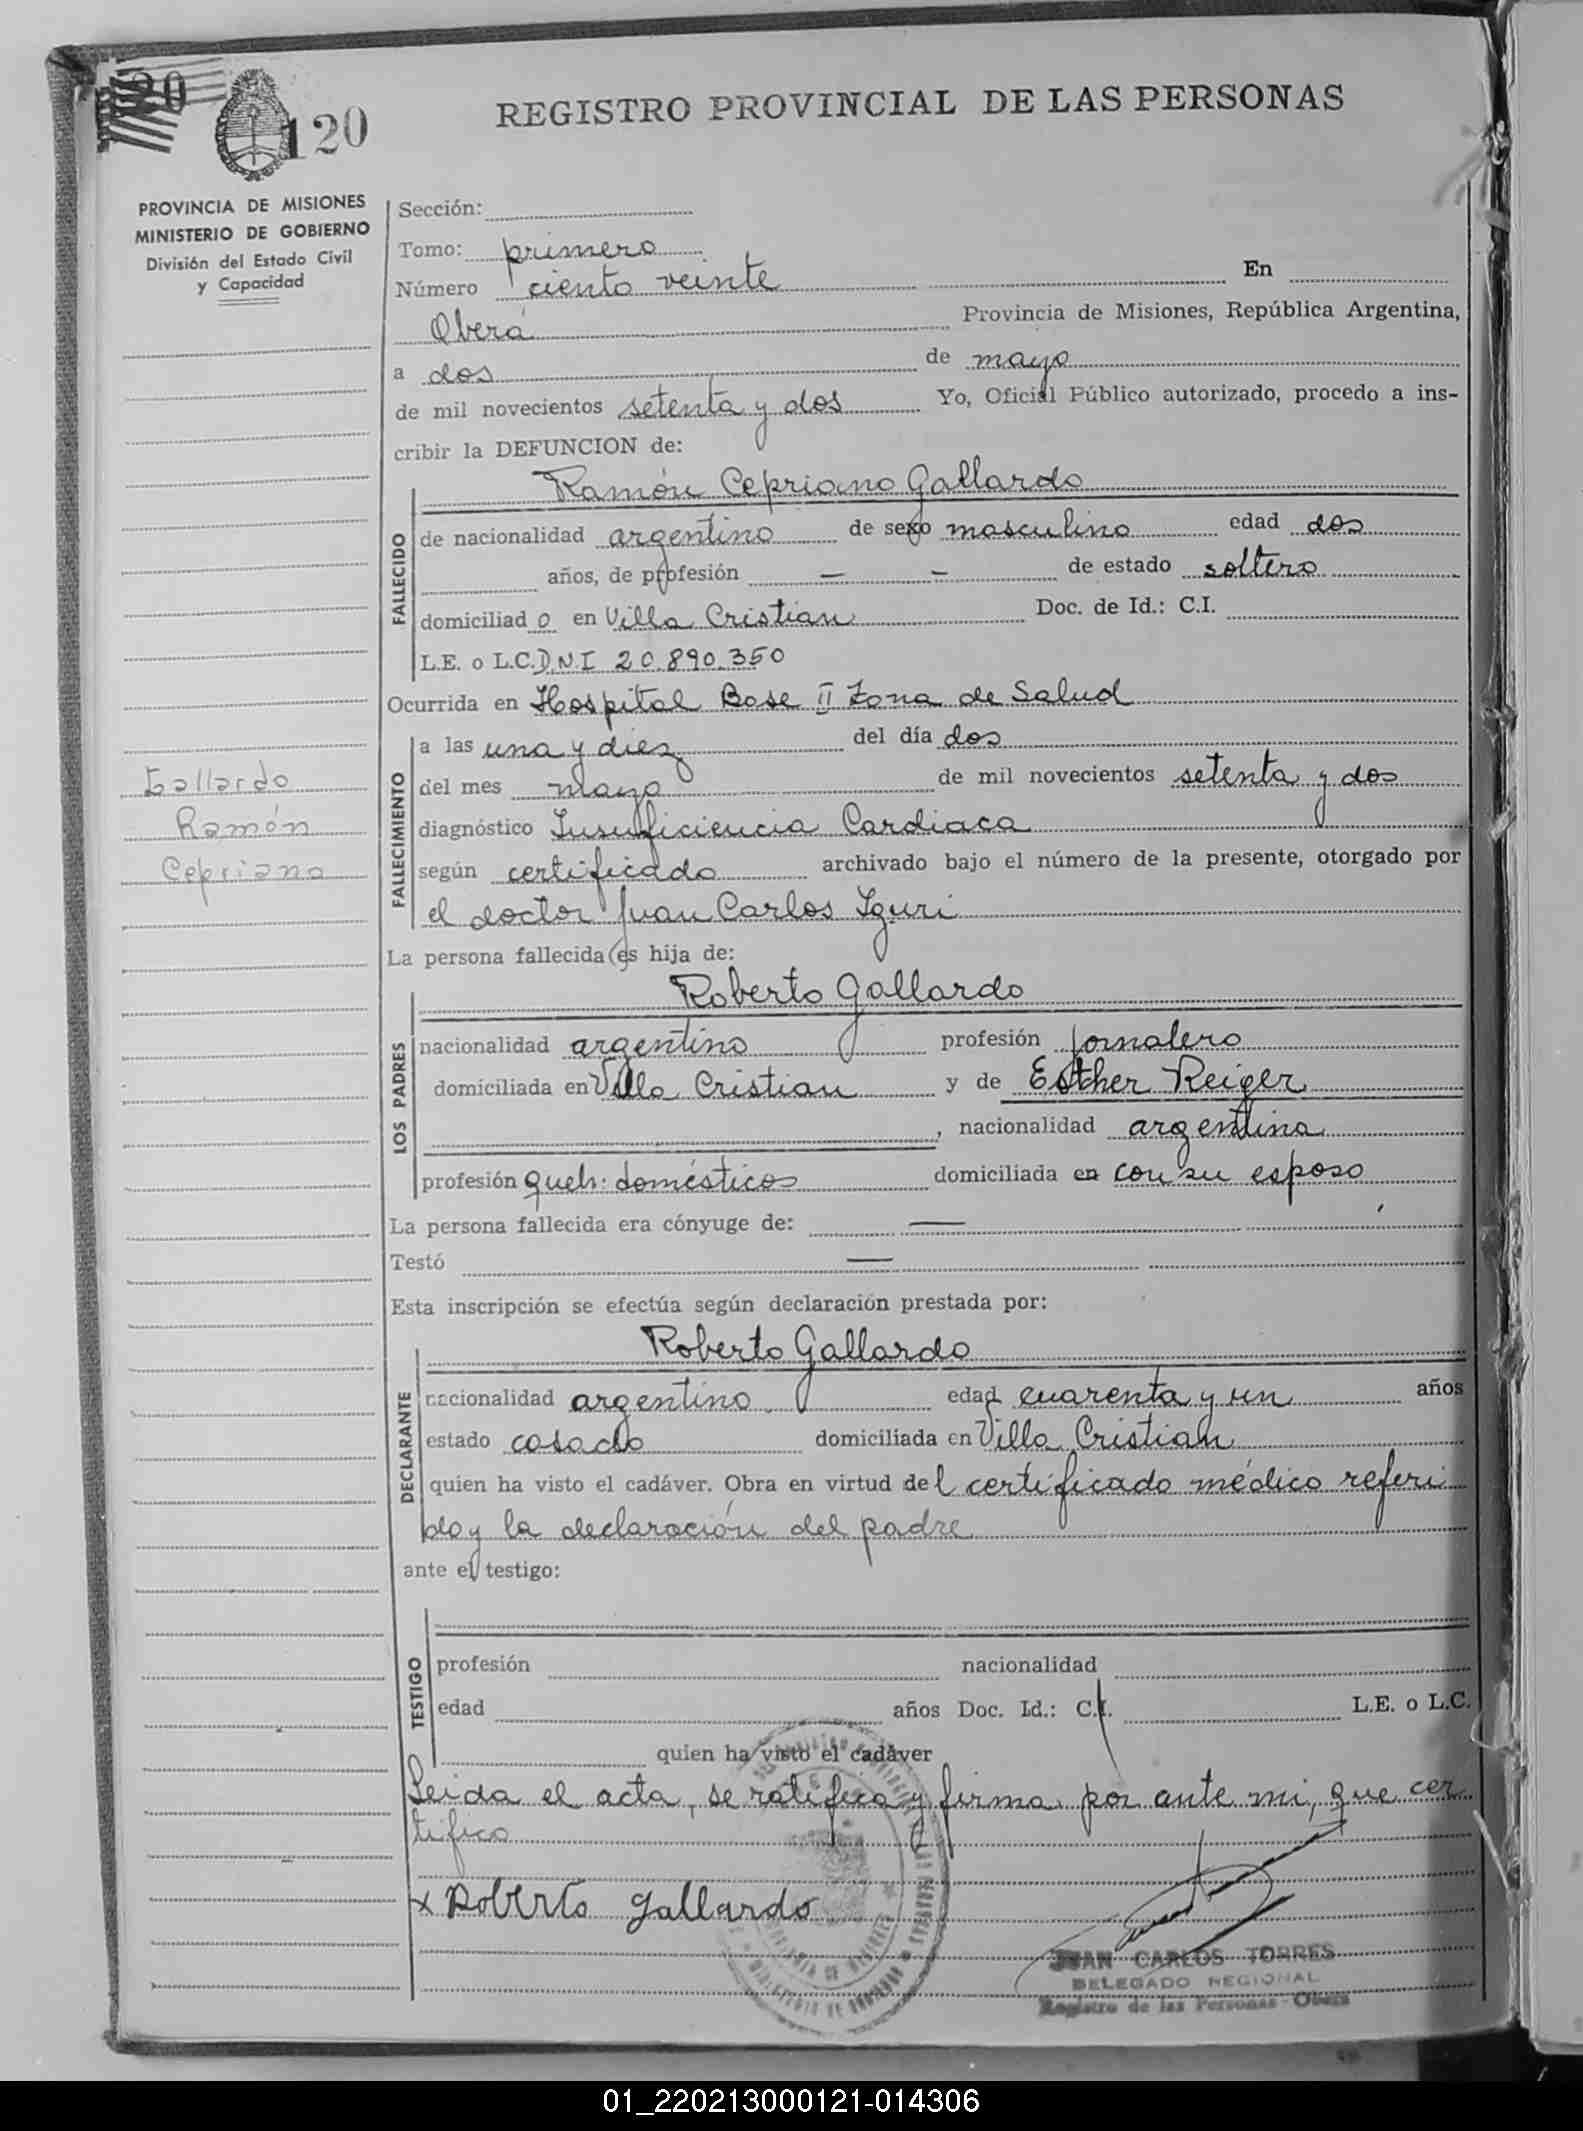 120
REGISTRO PROVINCIAL DE LAS PERSONAS
PROVINCIA DE MISIONES
MINISTERIO DE GOBIERNO
División del Estado Civil
y Capacidad
Gallardo
Ramón
Cepriano
Sección:
Tomo: primero
Número ciento veinte En
Oberá Provincia de Misiones, República Argentina,
a dos de mayo
de mil novecientos setenta y dos Yo, Oficial Público autorizado, procedo a ins-
cribir la DEFUNCION de:
Ramón Cepriano Gallardo
FALLECIDO
de nacionalidad argentino de sexo masculino edad dos
años, de profesión — — de estado soltero
domiciliad o en Villa Cristian Doc. de Id.: C.I.
L.E. o L.C. D.N.I 20.890.350
Ocurrida en Hospital Base II Zona de Salud
FALLECIMIENTO
a las una y diez del día dos
del mes mayo de mil novecientos setenta y dos
diagnóstico Insuficiencia Cardiaca
según certificado archivado bajo el número de la presente, otorgado por
el doctor Juan Carlos Iguri
La persona fallecida es hija de:
Roberto Gallardo
LOS PADRES
nacionalidad argentino profesión jornalero
domiciliada en Villa Cristian y de Esther Reiger
, nacionalidad argentina
profesión queh: domésticos domiciliada en con su esposo
La persona fallecida era cónyuge de: —
Testó —
Esta inscripción se efectúa según declaración prestada por:
Roberto Gallardo
DECLARANTE
nacionalidad argentino. edad cuarenta y un años
estado casado domiciliada en Villa Cristian
quien ha visto el cadáver. Obra en virtud del certificado médico referi
do y la declaración del padre
ante el testigo:
TESTIGO
profesión nacionalidad
edad años Doc. Id.: C.I. L.E. o L.C.
quien ha visto el cadáver
Leida el acta, se ratifica y firma por ante mi, que cer
tifico
x Roberto Gallardo
JUAN CARLOS TORRES
DELEGADO REGIONAL
Registro de las Personas - Oberá
01_220213000121-014306